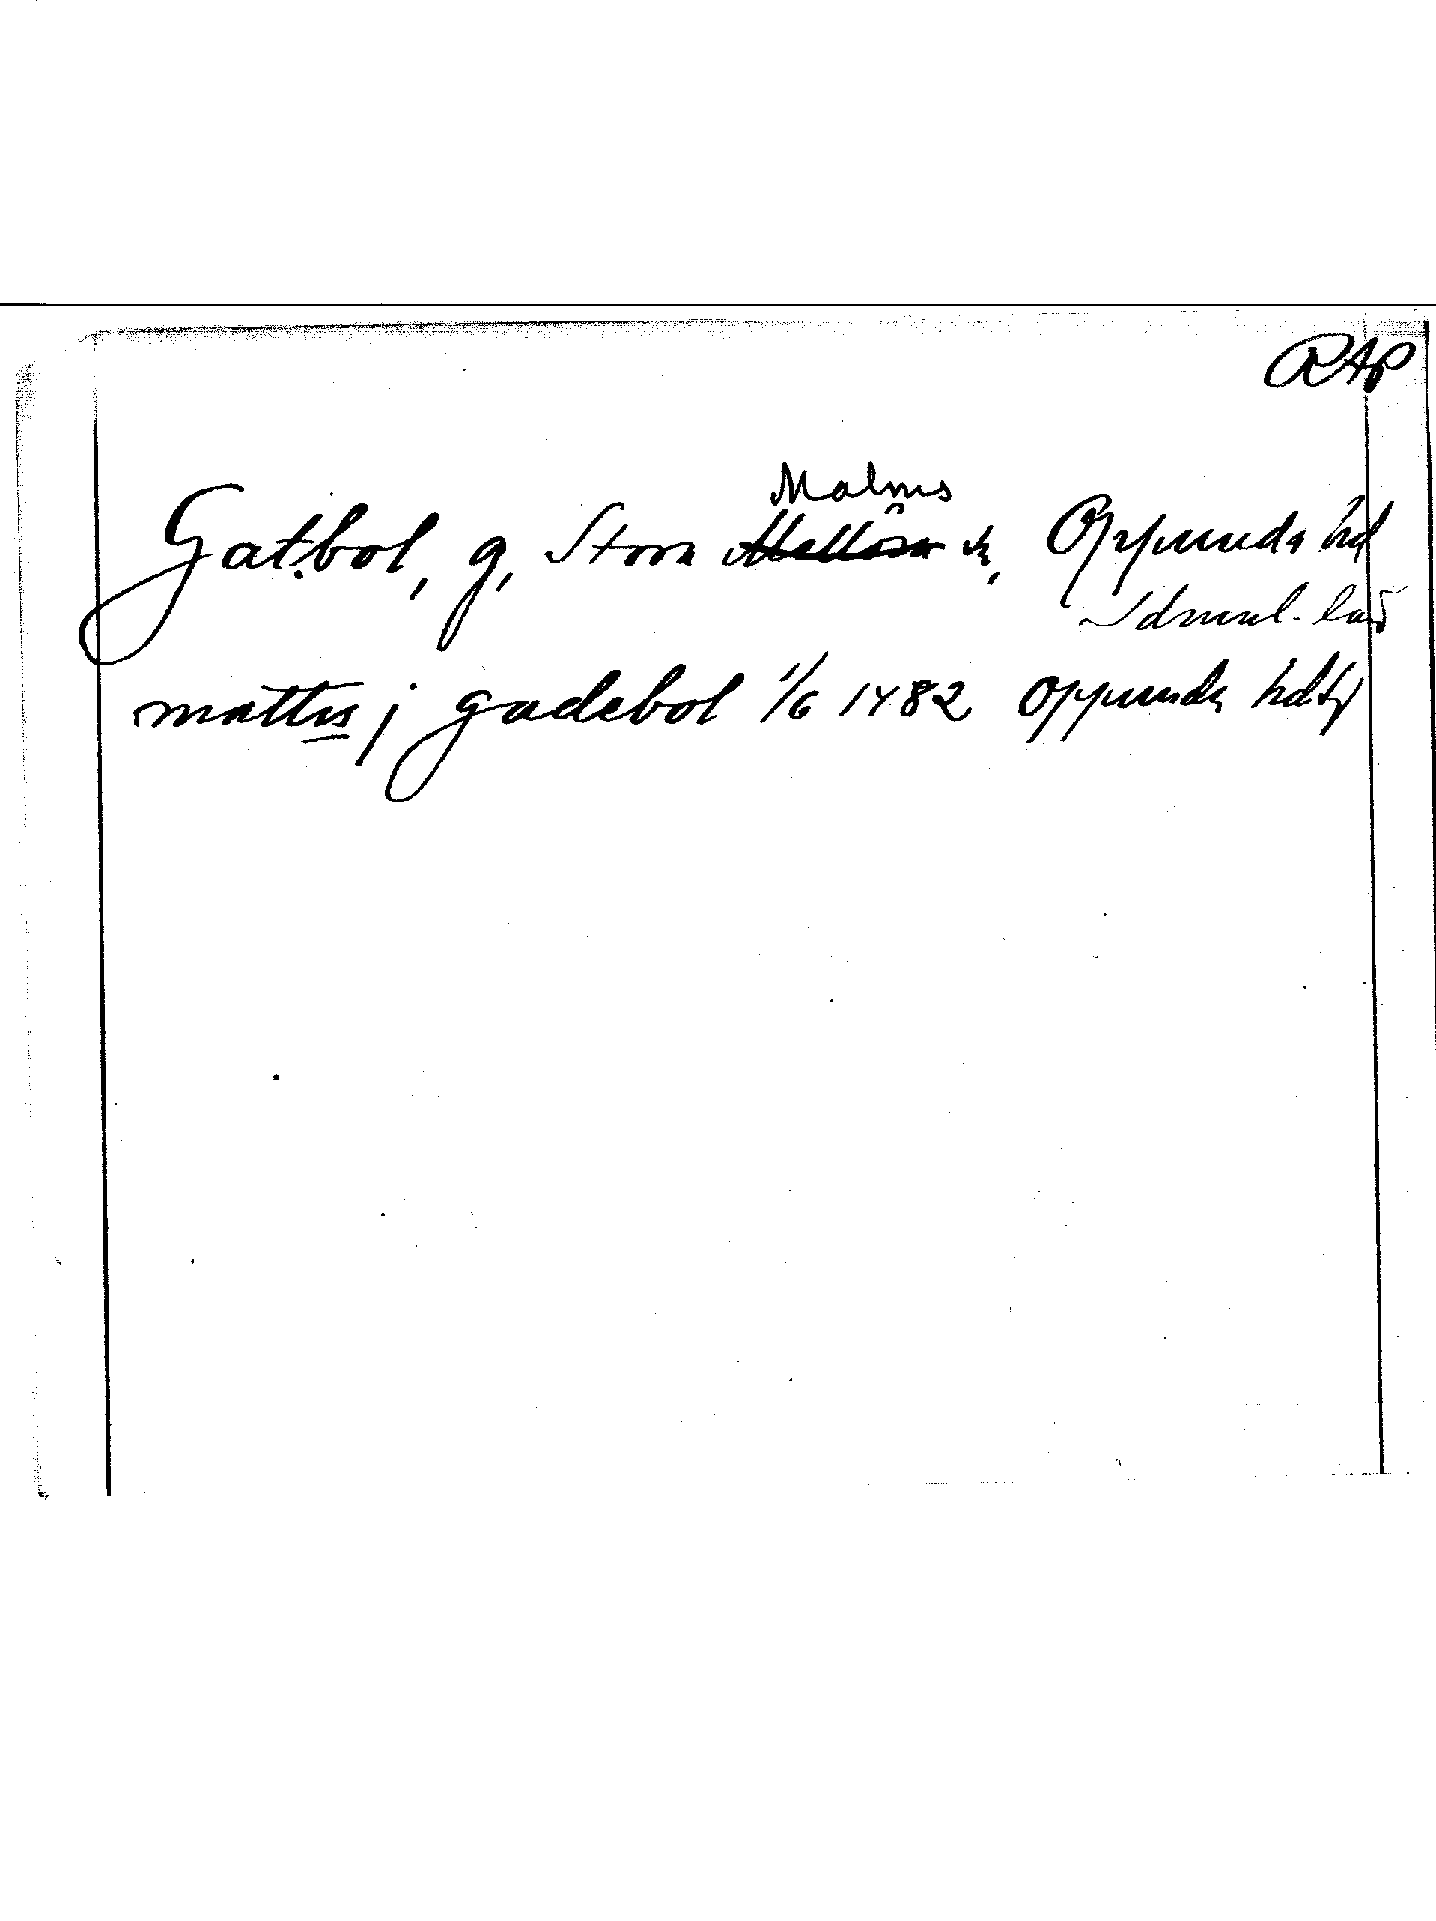 RAP
Malms
Gatbol, g, Stora Mellösa sn, Oppunda hd
Sdrml. län
mattis j gadebol 1/6 1482 Oppunda hdtg